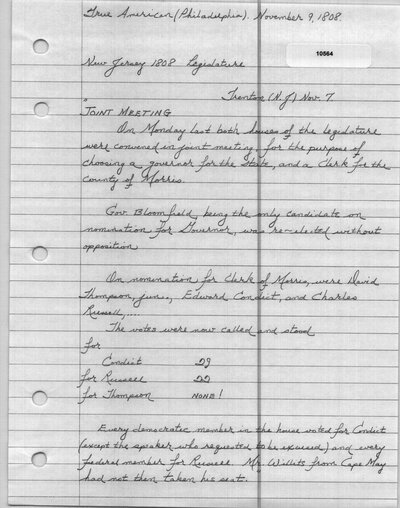 True American (Philadelphia). November 9, 1808.
10564
New Jersey 1808 Legislature
Trenton (N.J.) Nov. 7
"
JOINT MEETING
On Monday last both houses of the legislature
were convened in joint meeting, for the purpose of
choosing a governor for the State, and a Clerk for the
county of Morris.
Gov. Bloomfield, being the only candidate on
nomination for Governor, was re-elected without
opposition
On nomination for Clerk of Morris, were David
Thompson, jun., Edward Condict, and Charles
Russell,....
The votes were now called and stood
for
Condict 29
for Russell 22
for Thompson NONE!
Every democratic member in the house voted for Condict
(except the speaker who requested to be excused) and every
federal member for Russell. Mr. Willets from Cape May
had not then taken his seat.